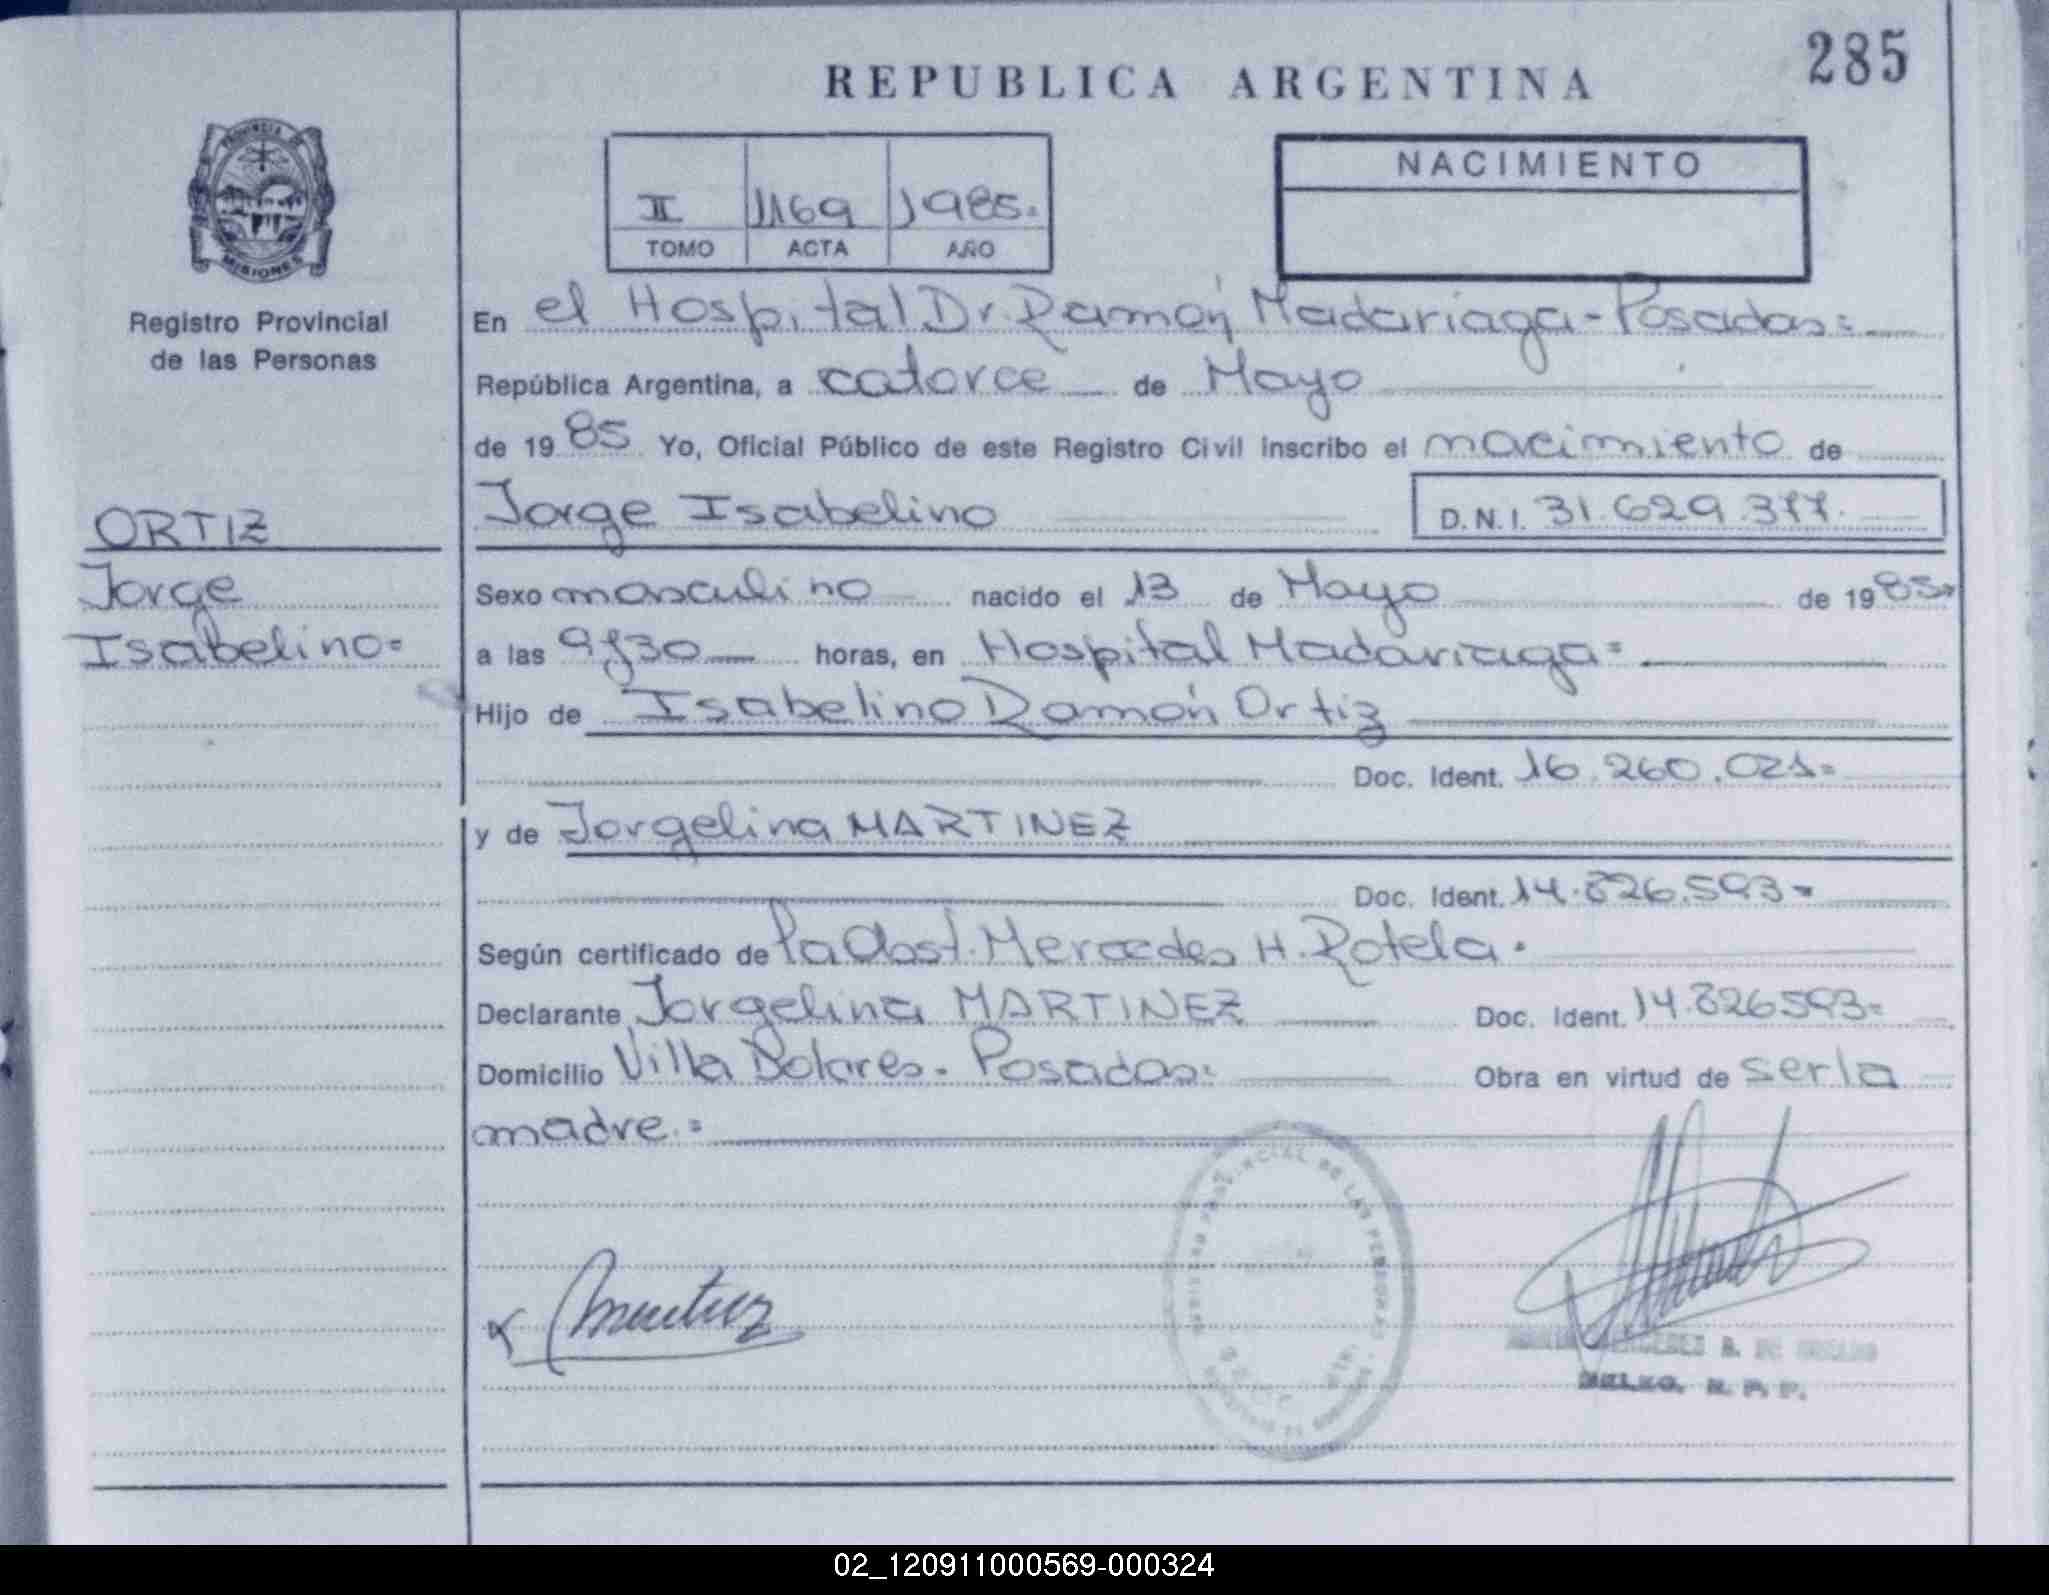 285
REPUBLICA ARGENTINA
PROVINCIA DE
MISIONES
Registro Provincial
de las Personas
II 1169 1985.=
TOMO ACTA AÑO
NACIMIENTO
En el Hospital Dr Ramón Madariaga - Posadas =
República Argentina, a catorce de Mayo
de 1985 Yo, Oficial Público de este Registro Civil inscribo el nacimiento de
Jorge Isabelino D.N.I. 31.629.377.
ORTIZ
Jorge
Isabelino =
Sexo masculino nacido el 13 de Mayo de 1985=
a las 9y30 horas, en Hospital Madariaga =
Hijo de Isabelino Ramón Ortiz
Doc. Ident. 16.260.021=
y de Jorgelina MARTINEZ
Doc. Ident. 14.826.593=
Según certificado de la Obst. Mercedes H. Rotela.
Declarante Jorgelina MARTINEZ Doc. Ident. 14.826593=
Domicilio Villa Dolores - Posadas: Obra en virtud de ser la
madre. =
PROVINCIAL DE LAS PERSONAS
R. P. P.
02_120911000569-000324